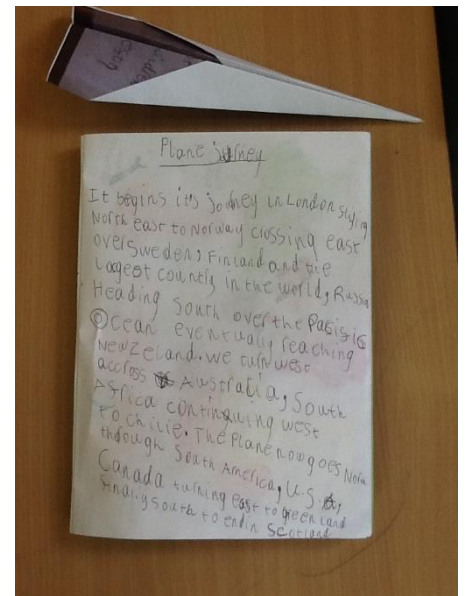 Plane jorney
It begins its jorney in London flying
North east to Norway crossing east
over Sweden, Finland and the
Largest country in the world, Russia
Heading South over the Pacific
Ocean eventually reaching
New Zeland. we turn west
accross Australia, South
Africa continuing west
to chilie. The Plane now goes North
through South America, U.S.A,
Canada turning east to green land
finally South to end in Scotland